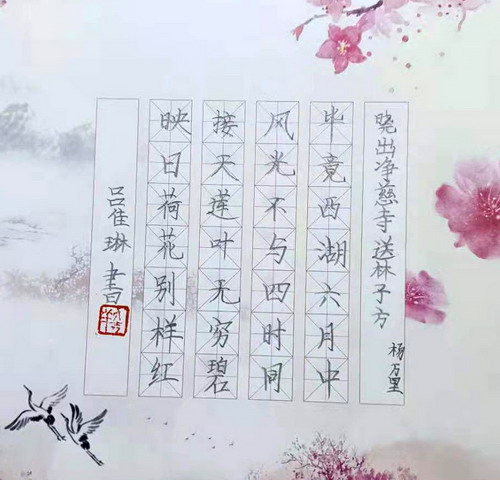 晓出净慈寺送林子方
杨万里
毕竟西湖六月中
风光不与四时同
接天莲叶无穷碧
映日荷花别样红
吕佳琳 書